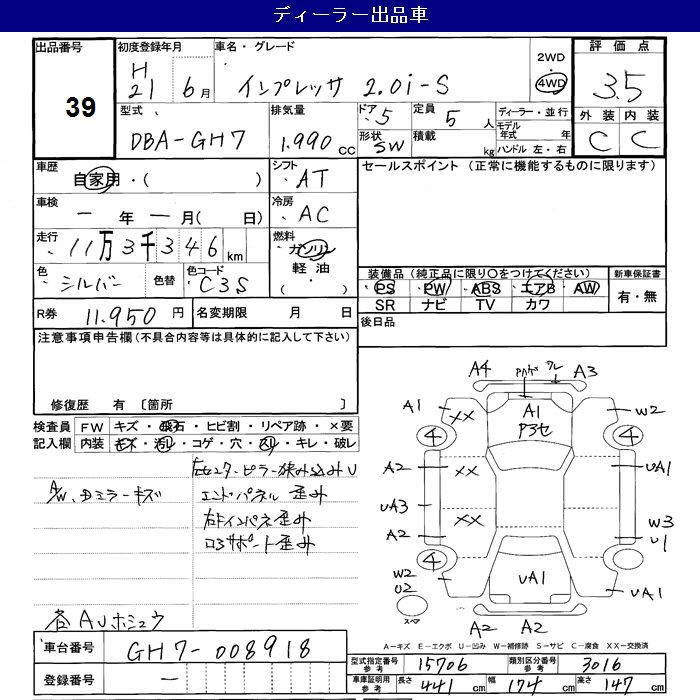 ディーラー出品車
出品番号 39
初度登録年月 H21 6月
車名・グレード インプレッサ 2.0i-S
2WD・4WD
評価点 3.5
外装 C 内装 C
型式 DBA-GH7
排気量 1.990 cc
ドア 5
形状 SW
定員 5 人
積載 kg
ディーラー・並行
モデル年式 年
ハンドル 左・右
車歴 自家用・( )
シフト ・AT
セールスポイント (正常に機能するものに限ります)
車検 ー 年 ー 月( 日)
冷房 ・AC
走行 ・11万3千346 km
燃料 ・ガソリン 軽油 ( ・ )
色 シルバー 色替 色コード ・C3S
装備品 (純正品に限り○をつけてください)
・PS ・PW ・ABS ・エアB ・AW
SR ナビ TV カワ
新車保証書 有・無
R券 11.950 円
名変期限 月 日
後日品
注意事項申告欄 (不具合内容等は具体的に記入して下さい)
修復歴 有 〔箇所 〕
検査員記入欄
FW キズ・飛石・ヒビ割・リペア跡・×要
内装 キズ・汚レ・コゲ・穴・スレ・キレ・破レ
A/W、
ミラーキズ
ピラー挟み込みU
エンドパネル 歪み
インパネ歪み
サポート歪み
各AUホシュウ
A4
ワレ
A3
A1
××
A1
W2
4
4
A2
××
UA1
UA3
××
W3
A2
U1
4
W2
U2
UA1
UA1
スペア
A2 A2
A-キズ E-エクボ U-凹み W-補修跡 S-サビ C-腐食 XX-交換済
車台番号 GH7-008918
登録番号 ー
型式指定番号 参考 15706
類別区分番号 参考 3016
車庫証明用 参考 長さ 441 cm 幅 174 cm 高さ 147 cm